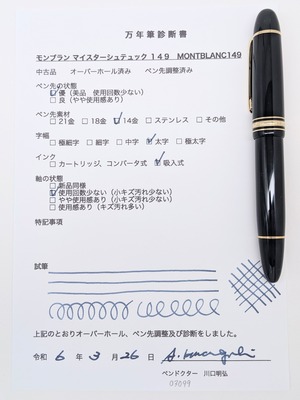 万年筆診断書
モンブラン マイスターシュテュック 149 MONTBLANC149
中古品 オーバーホール済み ペン先調整済み
ペン先の状態
☑優（美品 使用回数少ない）
□良（やや使用感あり）
ペン先素材
□21金 □18金 ☑14金 □ステンレス □その他
字幅
□極細字 □細字 □中字 ☑太字 □極太字
インク
□カートリッジ、コンバータ式 ☑吸入式
軸の状態
□新品同様
☑使用回数少ない（小キズ少ない）
□やや使用感あり（小キズ少ない）
□使用感あり（キズ汚れ多い）
特記事項
試筆
上記のとおりオーバーホール、ペン先調整及び診断をしました。
令和 6 年 3 月 26 日
ペンドクター 川口明弘
07099